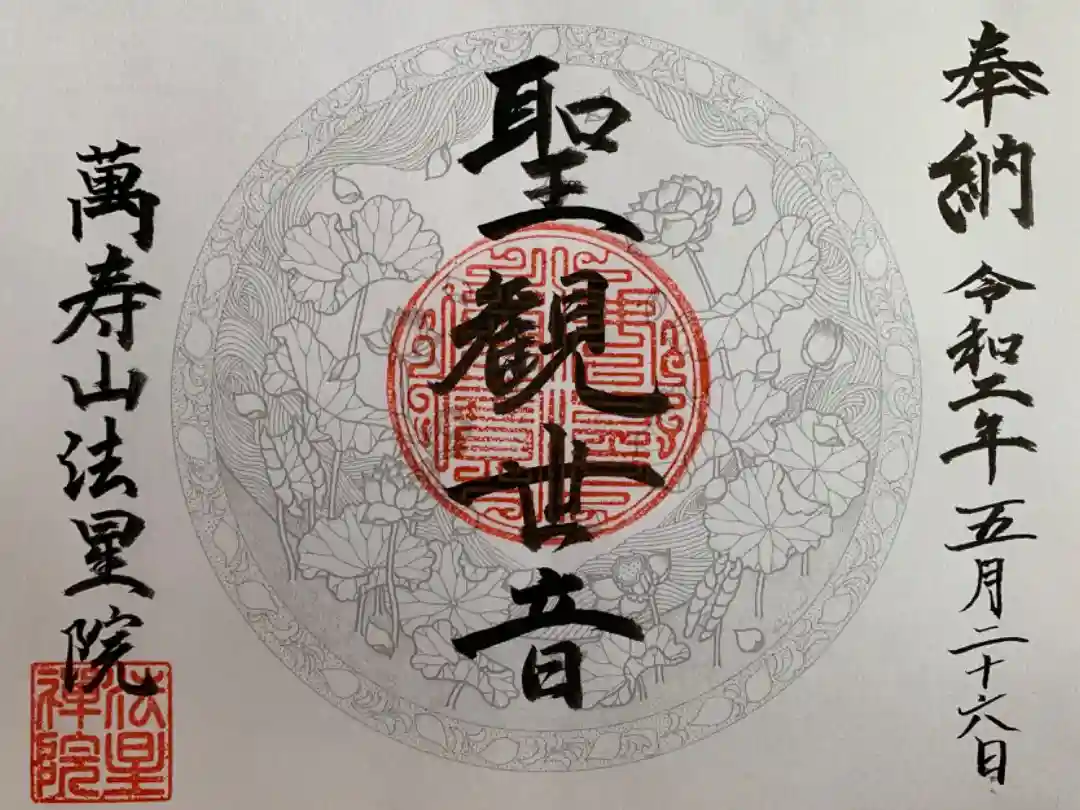 奉納 令和二年五月二十六日
聖觀世音
萬寿山法星院
法星
禅院